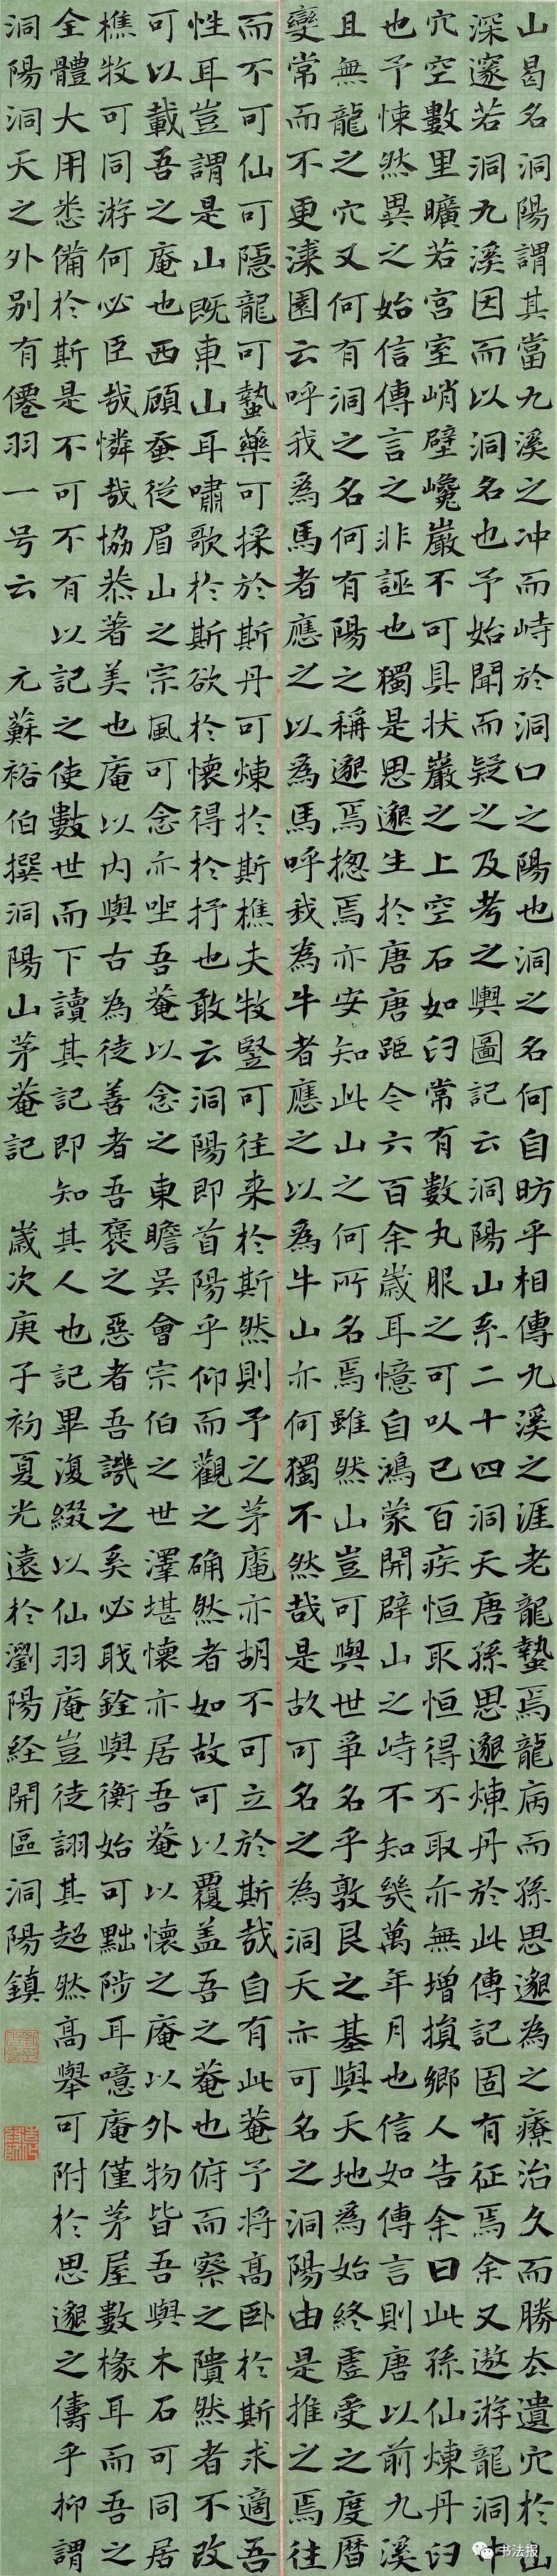 山曷名洞陽謂其當九溪之冲而峙於洞口之陽也洞之名何自昉乎相傳九溪之涯老龍蟄焉龍病而孫思邈為之療治久而勝夳遺穴於山
深邃若洞九溪因而以洞名也予始聞而疑之及考之輿圖記云洞陽山系二十四洞天唐孫思邈煉丹於此傳記固有征焉余又遨游龍洞中
穴空數里曠若宮室峭壁巉巖不可具状巖之上空石如臼常有數丸服之可以已百疾恒取恒得不取亦無增損鄉人告余曰此孫仙煉丹臼
也予悚然異之始信傳言之非誣也獨是思邈生於唐唐距今六百余歲耳憶自鴻蒙開辟山之峙不知幾萬年月也信如傳言則唐以前九溪
且無龍之穴又何有洞之名何有陽之稱邈焉揔焉亦安知此山之何所名焉雖然山豈可與世爭名乎敦艮之基與天地爲始終虛受之度曆
變常而不更濠園云呼我爲馬者應之以爲馬呼我為牛者應之以爲牛山亦何獨不然哉是故可名之為洞天亦可名之洞陽由是推之焉往
而不可仙可隱龍可蟄藥可採於斯丹可煉於斯樵夫牧豎可往来於斯然則予之茅庵亦胡不可立於斯哉自有此菴予将髙卧於斯求適吾
性耳豈謂是山既東山耳嘯歌於斯欲於懷得於抒也敢云洞陽即首陽乎仰而觀之确然者如故可以覆盖吾之菴也俯而察之隤然者不改
可以載吾之庵也西顧蚕從眉山之宗風可念亦唑吾菴以念之東瞻吳會宗伯之世澤堪懷亦居吾菴以懷之庵以外物皆吾與木石可同居
樵牧可同游何必臣哉憐哉協恭著美也庵以内與古為徒善者吾褒之惡者吾譏之奚必戥銓與衡始可黜陟耳噫庵僅茅屋數椽耳而吾之
全體大用悉備於斯是不可不有以記之使數世而下讀其記即知其人也記畢復綴以仙羽庵豈徒詡其超然髙舉可附於思邈之儔乎抑謂
洞陽洞天之外别有僊羽一号云 元蘇裕伯撰洞陽山茅菴記 歲次庚子初夏光遠於瀏陽経開區洞陽鎮
书法报